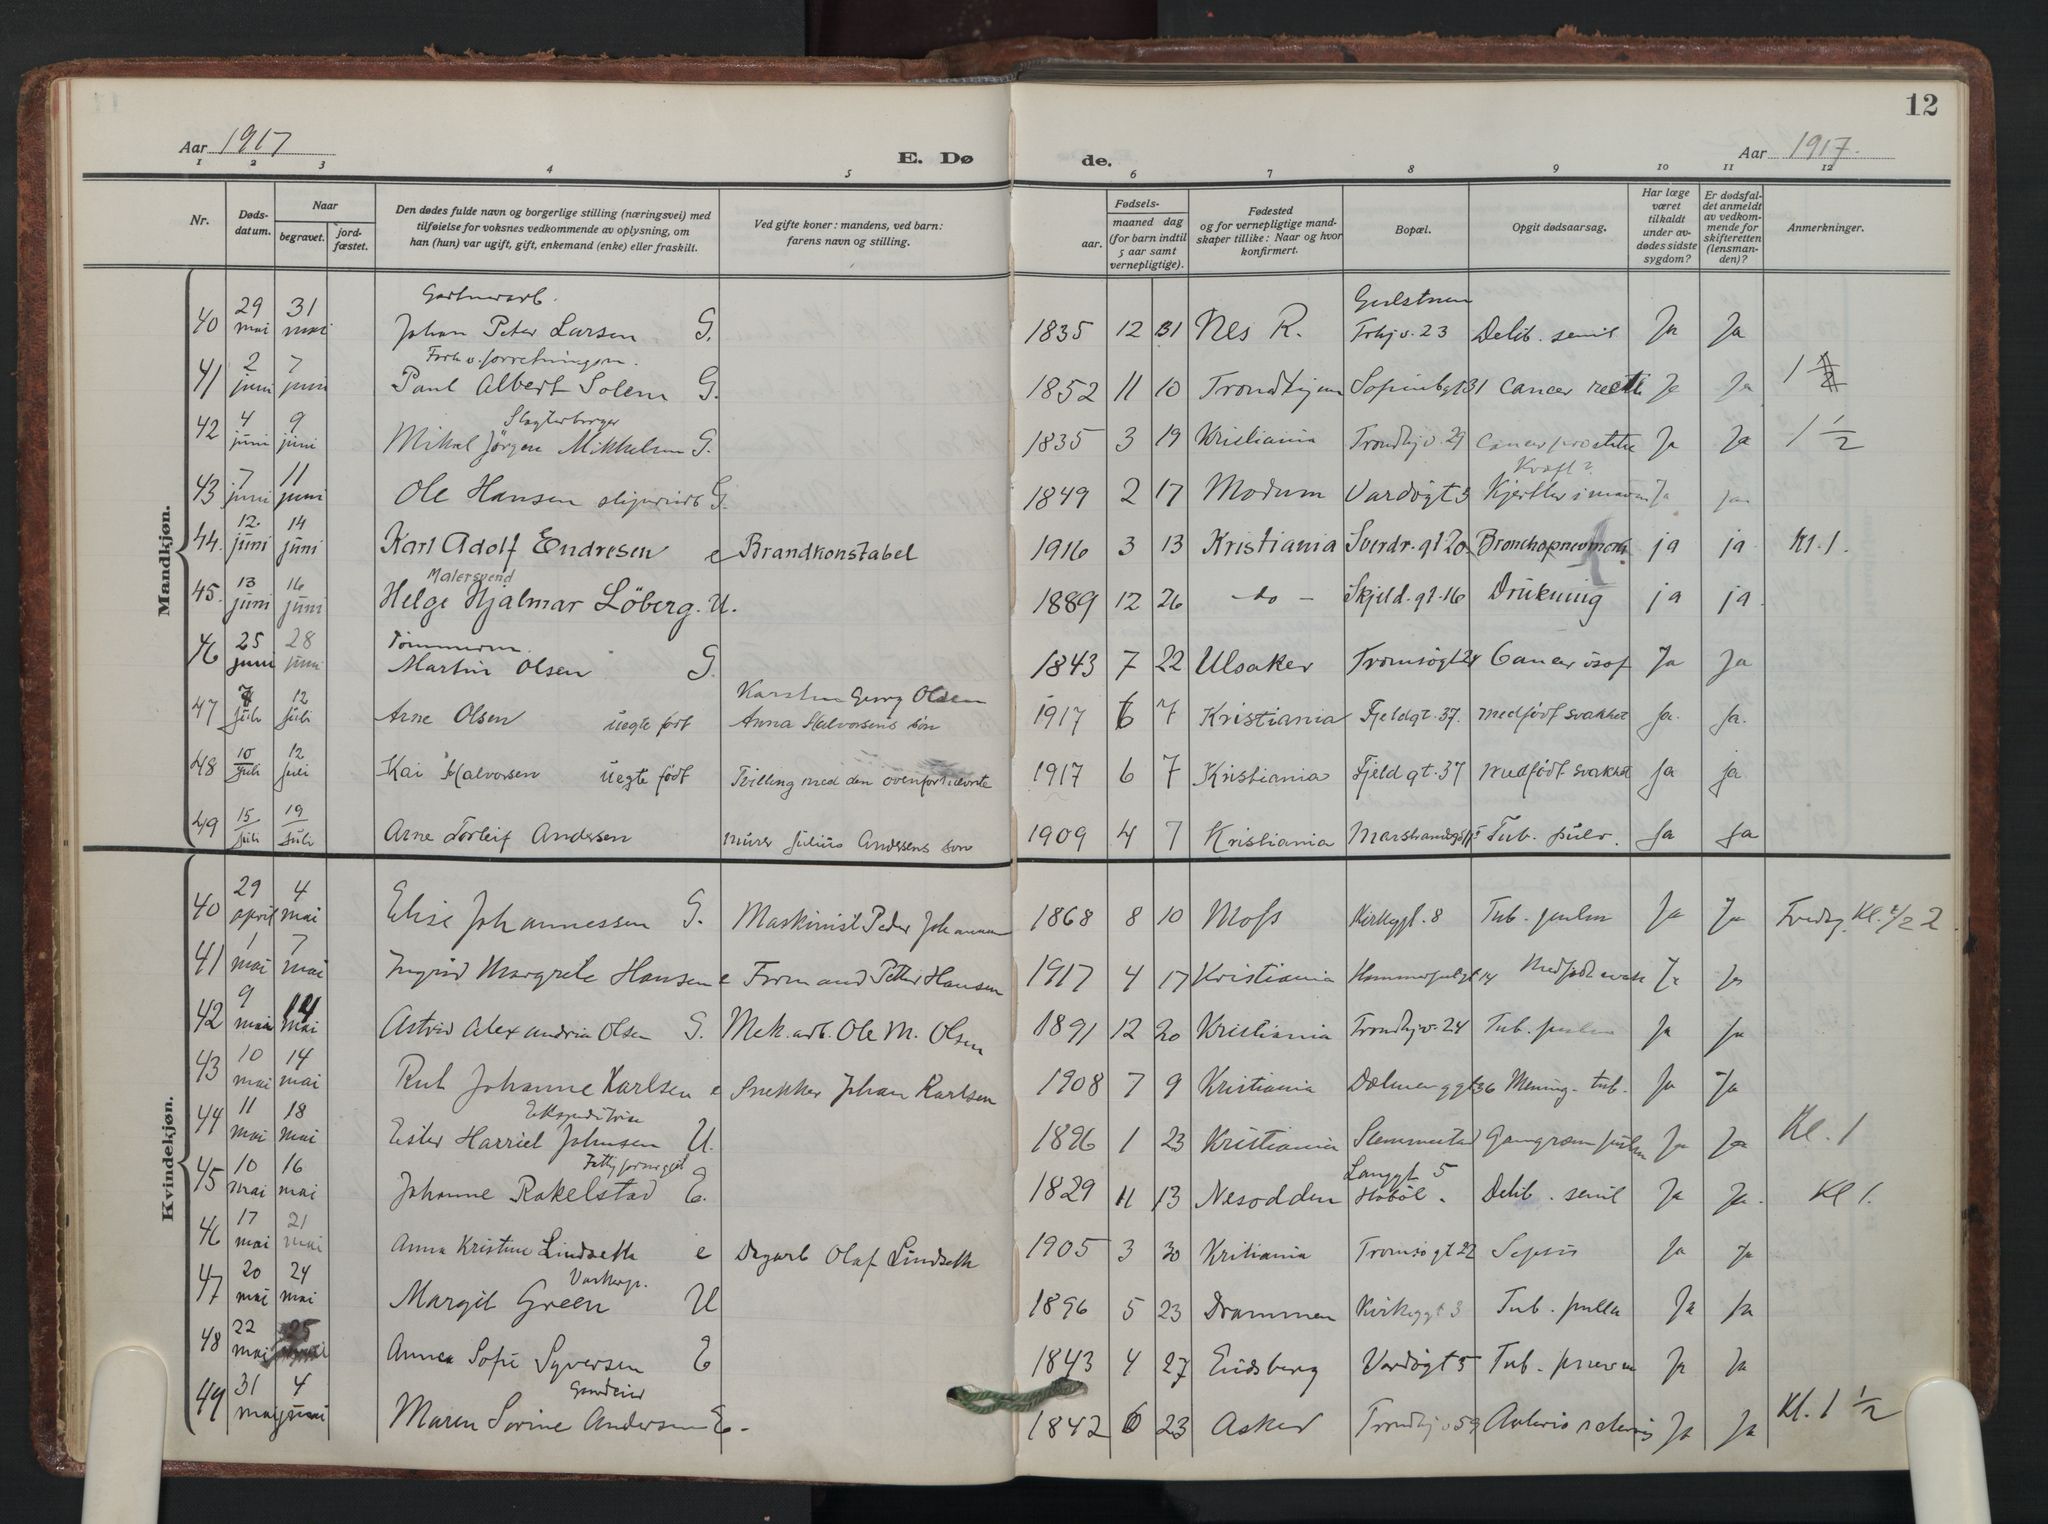 12
Aar 1917
E. Dø
de.
Aar 1917.
1 2 3 4 5 6 7 8 9 10 11 12
Nr.
Døds-
datum.
Naar
begravet.
jord-
fæstet.
Den dødes fulde navn og borgerlige stilling (næringsvei) med
tilføielse for voksnes vedkommende av oplysning, om
han (hun) var ugift, gift, enkemand (enke) eller fraskilt.
Ved gifte koner: mandens, ved barn:
farens navn og stilling.
Fødsels-
aar.
maaned dag
(for barn indtil
5 aar samt
vernepligtige).
Fødested
og for vernepligtige mand-
skaper tillike: Naar og hvor
konfirmert.
Bopæl.
Opgit dødsaarsag.
Har læge
været
tilkaldt
under av-
dødes sidste
sygdom?
Er dødsfal-
det anmeldt
av vedkom-
mende for
skifteretten
(lensman-
den)?
Anmerkninger.
Mandkjøn.
40 29 mai 31 mai Gartnerarb. Johan Peter Larsen G. 1835 12 31 Nes R. Trhj.v. 23 Debil. senil Ja Ja
41 2 juni 7 juni Forh.v. forretningsm. Paul Albert Solem G. 1852 11 10 Trondhjem Sofienbgt 31 Cancer recti Ja Ja 1
42 4 juni 9 juni Slagterborger Mikal Jörgen Mikkelsen G. 1835 3 19 Kristiania Trondhj.v. 29 Cancer prostate Ja Ja 1 1/2
43 7 juni 11 juni Ole Hansen G. 1849 2 17 Modum Vardögt 3 Kræft? Kjertler i maven Ja Ja
44. 12. juni 14 juni Karl Adolf Endresen e Brandkonstabel 1916 3 13 Kristiania Sverdr. gt 20 Bronchopneumoni ja ja Kl. 1.
45. 13 juni 16 juni Malersvend Helge Hjalmar Löberg. U. 1889 12 26 - do - Skjeld. gt. 16 Drukning ja ja.
46 25 juni 28 juni Tömmerm. Martin Olsen G. 1843 7 22 Ulsaker Tromsögt 24 Cancer ösof Ja Ja
47 juli 12 juli Arne Olsen uegte født Karsten Georg Olsen Anna Halvorsens sön 1917 6 7 Kristiania Fjeldgt. 37. medfödt svakhet Ja. Ja.
48 10 juli 12 juli Kai Halvorsen uegte født Tvilling med den ovenfor nævnte 1917 6 7 Kristiania Fjeldgt. 37 medfödt svakhet Ja ja
49 15 juli 19 juli Arne Torleif Andersen murer Julius Andersens sön 1909 4 7 Kristiania Tub. pulm. Ja Ja
Kvindekjøn.
40 29 april 4 mai Elise Johannessen G. Maskinist Peder Johannes 1868 8 10 Moss Kirkegt. 8 Tub. pulm Ja Ja Fredag Kl. 1/2 2
41 1 mai 7 mai Ingrid Margrete Hansen e Formand Petter Hansen 1917 4 17 Kristiania 14 Medfödt svakh Ja Ja
42 9 mai 14 mai Astrid Alexandria Olsen G. Mek. arb. Ole M. Olsen 1891 12 20 Kristiania Trondhj.v. 24 Tub. pulm Ja Ja
43 10 mai 14 mai Rut Johanne Karlsen e Snekker Johan Karlsen 1908 7 9 Kristiania Dælenenggt 36 Mening. tub. Ja Ja
44 11 mai 18 mai Ekspeditrise Ester Harriet Johnsen U. 1896 1 23 Kristiania Slemmestad Gangræn pulm Ja Ja Kl. 1
45 10 mai 16 mai Johanne Rakelstad E. 1829 11 13 Nesodden Langgt 5 Haböl. Debil. senil Ja Ja. Kl 1.
46 17 mai 21 mai Anna Kristine Lindseth e Dagarb Olaf Lindseth 1905 3 30 Kritiania Tromsögt 22 Sepsis Ja Ja
47 20 mai 24 mai Vaskerp. Margit Green U 1896 5 23 Drammen Kirkeggt 3 Tub. pulla Ja Ja
48 22 mai 25 Anna Sofie Syversen E 1843 4 27 Eidsberg Vardögt 5 Ja Ja
49 31 mai 4 juni Gaardeier Maren Sorine Andersen E. 1842 6 23 Asker Trondhj.v 59 Arterio sclerosis Ja Ja Kl. 1 1/2